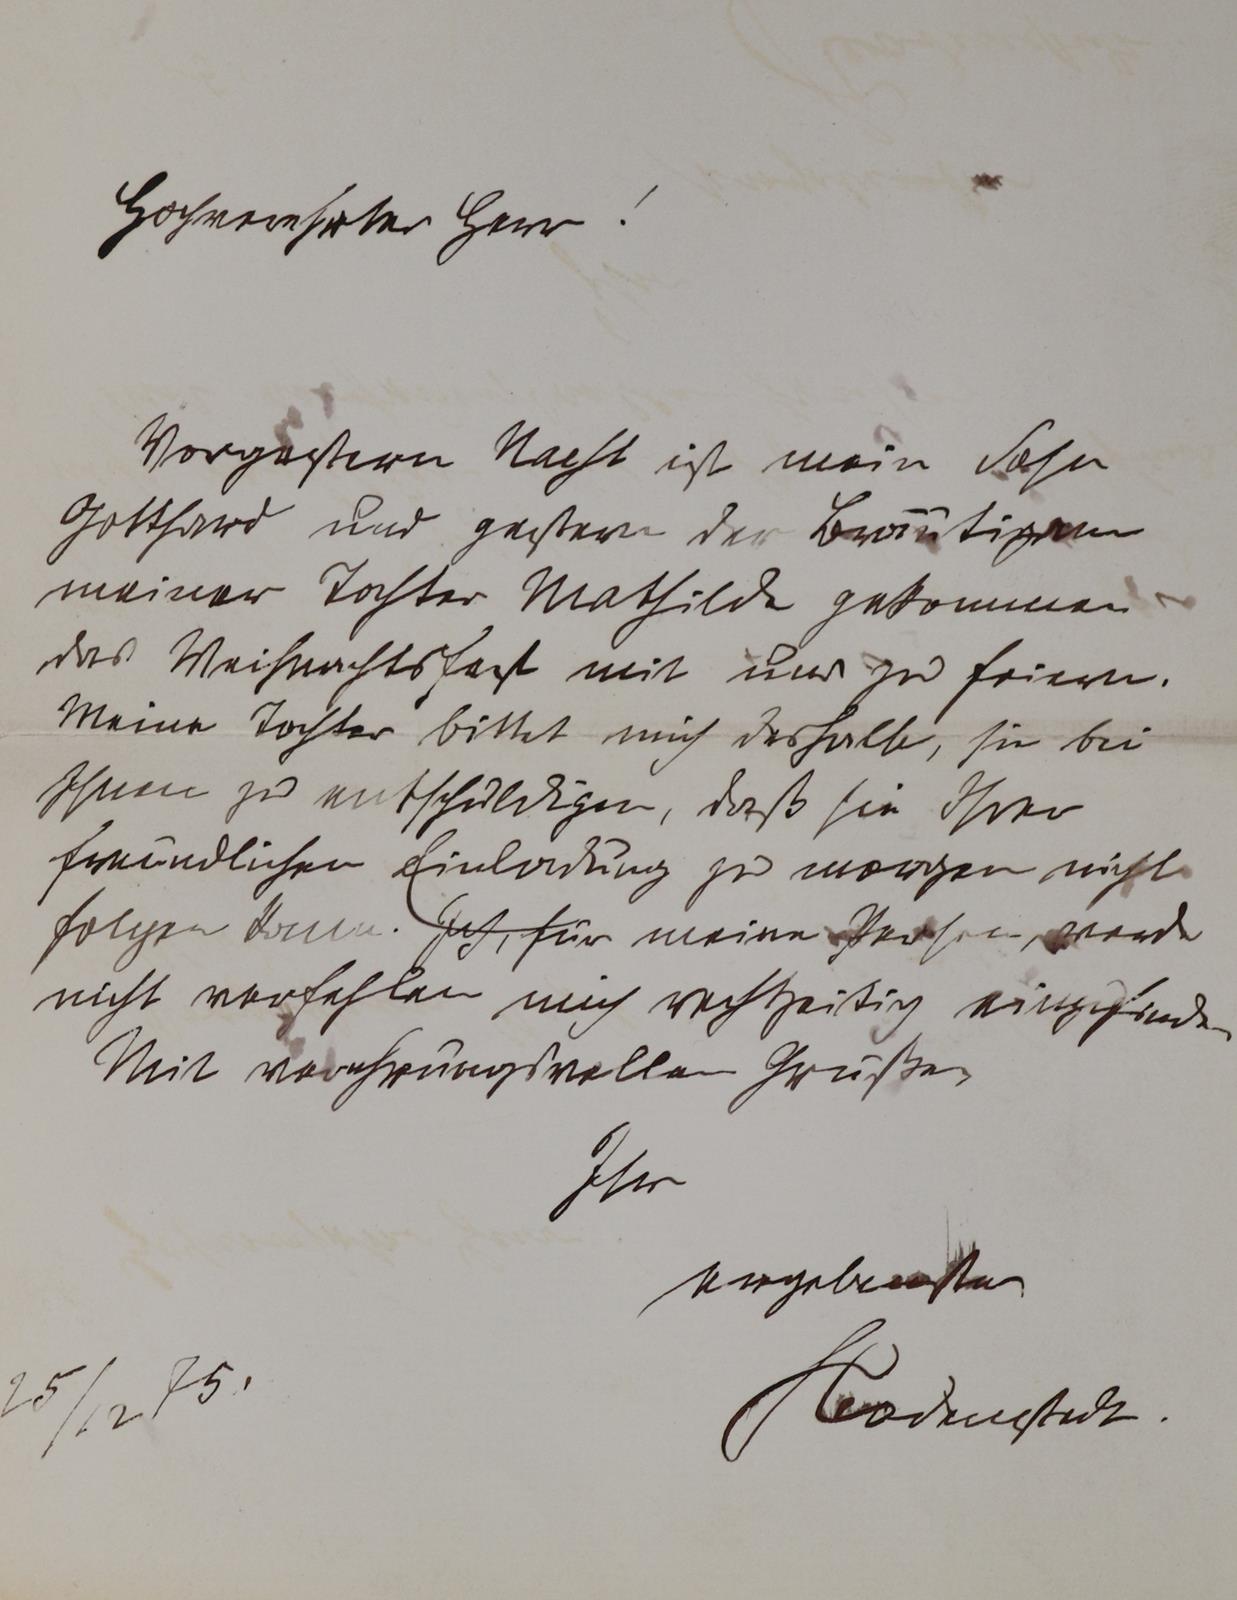 Hochverehrter Herr!
Vorgestern Nacht ist mein Sohn
Gotthard und gestern der Bräutigam
meiner Tochter Mathilde gekommen
das Weihnachtsfest mit uns zu feiern.
Meine Tochter bittet mich deshalb, sie bei
Ihnen zu entschuldigen, daß sie Ihrer
freundlichen Einladung zu morgen nicht
folgen kann. Ich, für meine Person, werde
nicht verfehlen mich rechtzeitig einzufinden
Mit verehrungsvollen Grüßen
Ihr
ergebenster
FBodenstedt.
25/12 75.